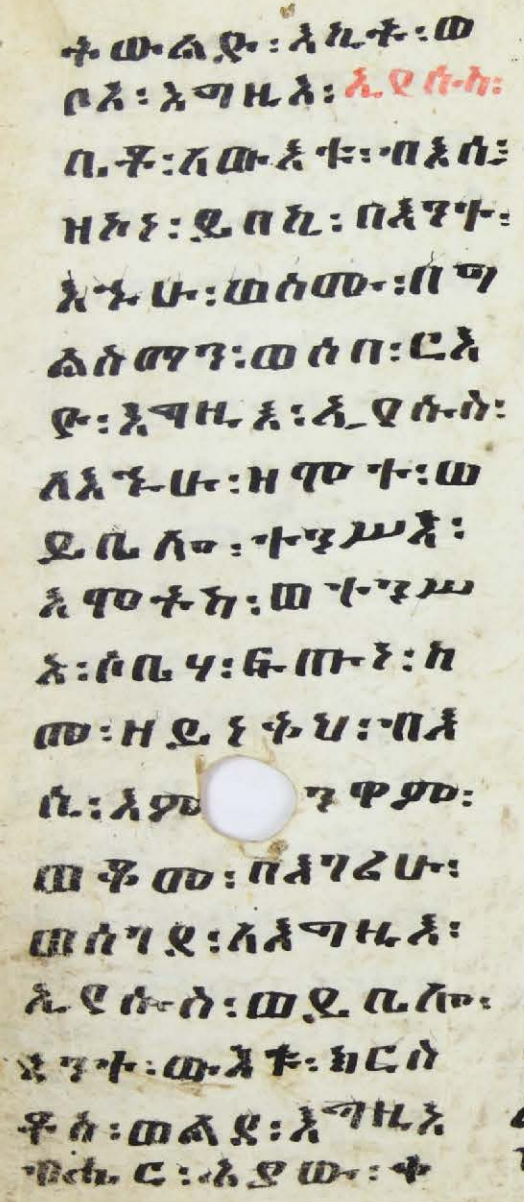 ቶውልዱ፡እኪቶ፡ወ
ቦአ፡እግዚእ፡ኢየሱስ፡
ቤቶ፡ለውእቱ፡ብእሲ፡
ዝኩነ፡ይበኪ፡በእንተ፡
እኁሁ፡ወስሙ፡በግ
ልስማን፡ወሶበ፡ርእ
ዮ፡እግዚእ፡ኢየሱስ፡
ለእኁሁ፡ዝሞተ፡ወ
ይቤሎ፡ተንሥእ፡
እሞትከ፡ወተንሥ
አ፡ሶቤሃ፡ፍጡነ፡ከ
መ፡ዘይነቅህ፡ብእ
ሲ፡እም ንዋም፡
ወቆመ፡በእግሩሁ፡
ወሰገደ፡ለእግዚእ፡
ኢየሱስ፡ወይቤሎ፡
አንተ፡ውእቱ፡ክርስ
ቶስ፡ወልደ፡እግዚአ
ብሔር፡ሕያው፡ቀ